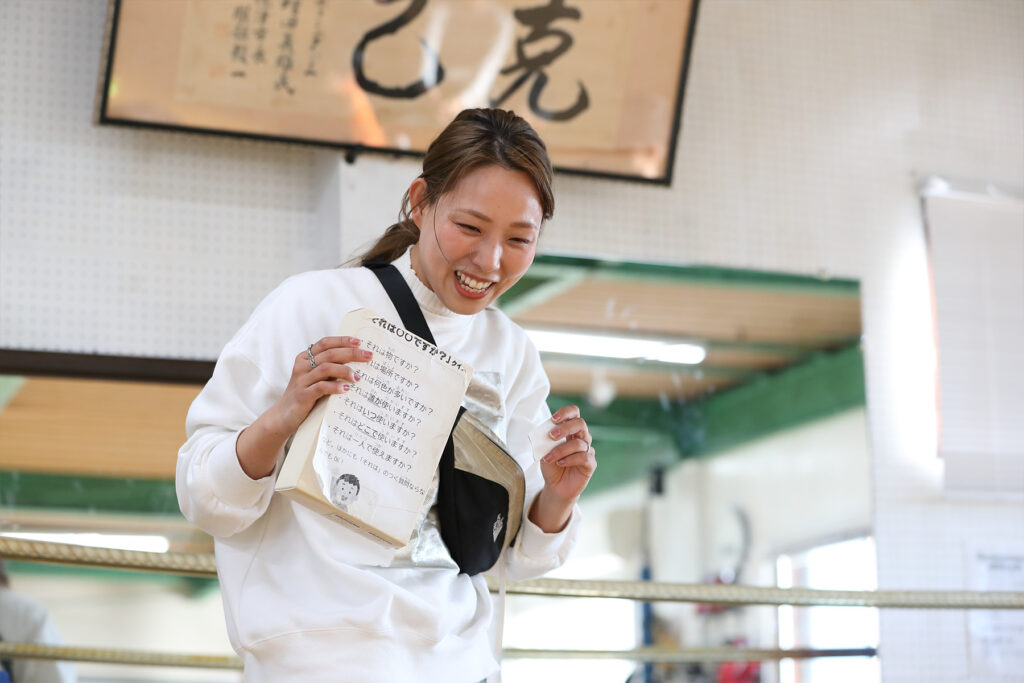 克己
それは〇〇ですか？」クイ
・それは物ですか？
れは場所ですか？
・それは何色が多いですか？
それは誰が使いますか？
・それはいつ使いますか？
・それはどこで使いますか？
・それは一人で使えますか？
ど、ほかにも「それは」のつく質問ならな
でもOK！